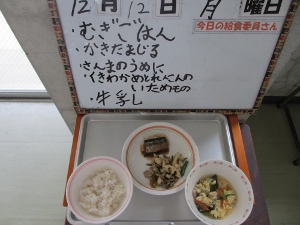 12月12日 月曜日
今日の給食委員さん
・むぎごはん
・かきたまじる
・さんまのうめに
・くきわかめとれんこんの
いためもの
・牛乳